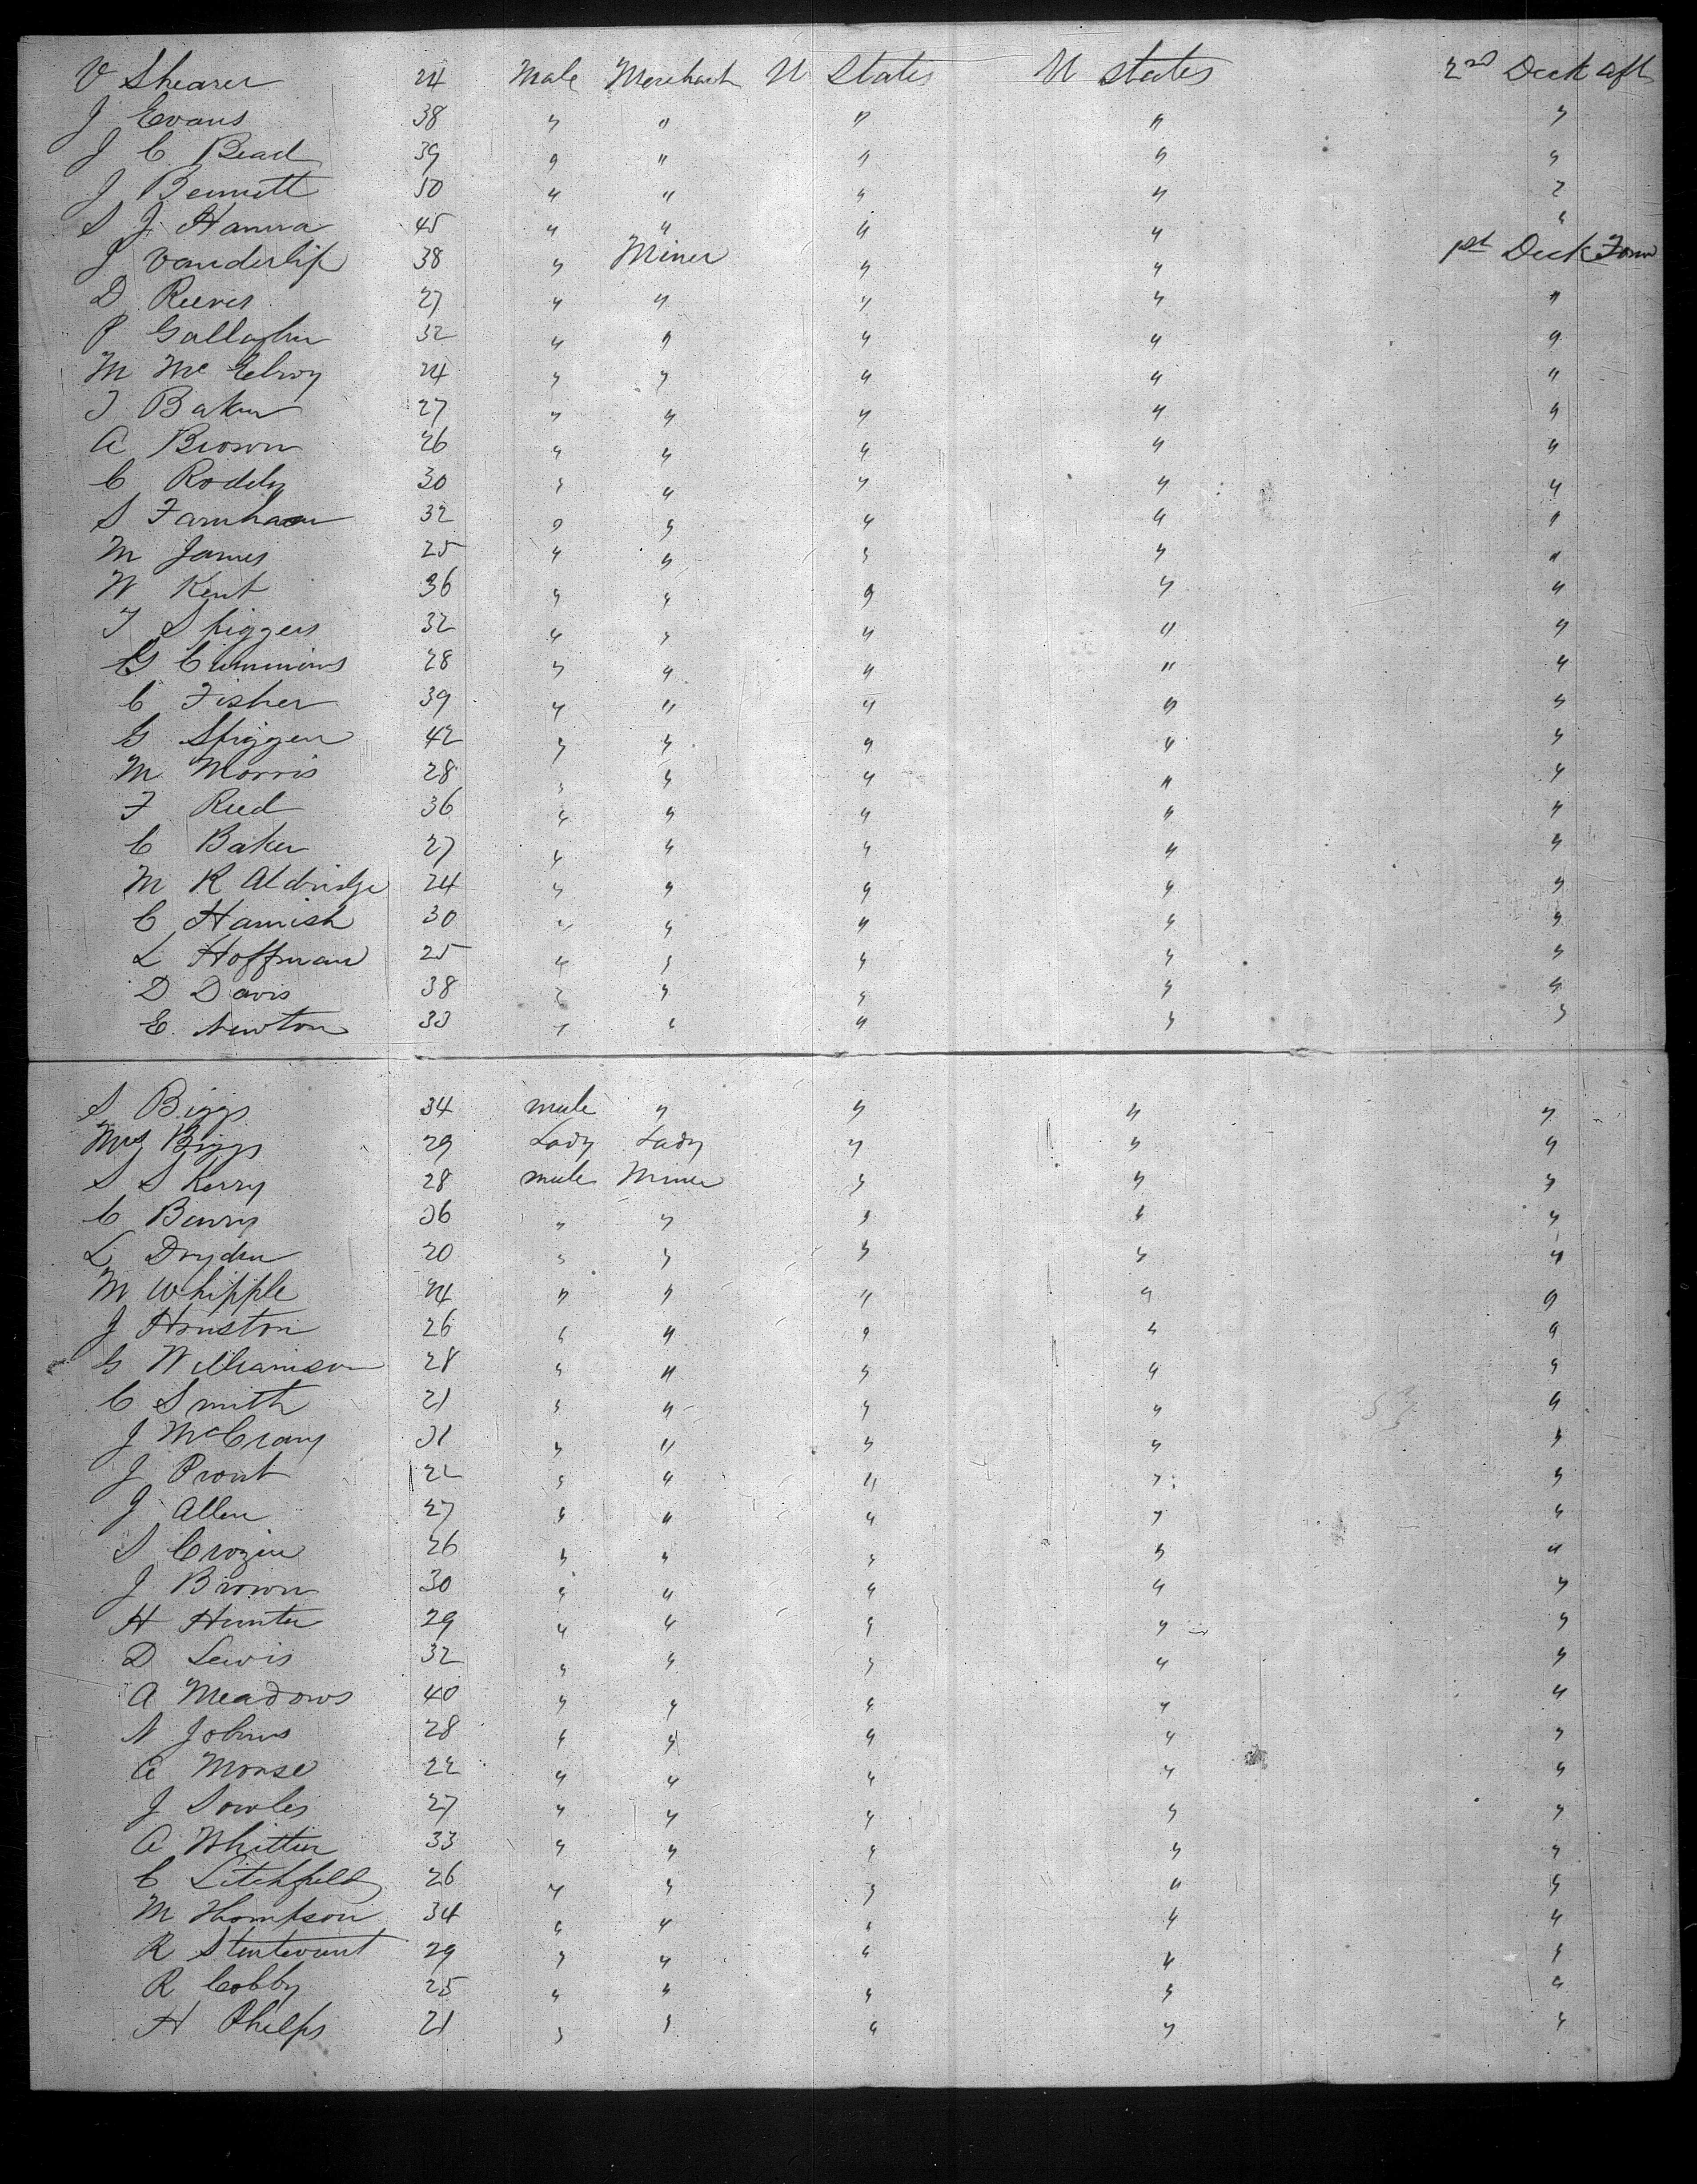 V Shearer 24 Male Merchant U States U states 2nd Deck aft
J Evans 38 " " " " "
J C Bead 39 " " " " "
J Bennett 50 " " " " "
S J Hanna 45 " " " " "
J Vanderlip 38 " Miner " " 1st Deck Forw
D Reeves 27 " " " " "
P Gallagher 32 " " " " "
M McElroy 24 " " " " "
J Baker 27 " " " " "
A Brown 26 " " " " "
C Roddy 30 " " " " "
S Farnham 32 " " " " "
M James 25 " " " " "
W Kent 36 " " " " "
T Spiggers 32 " " " " "
G Cummins 28 " " " " "
C Fisher 39 " " " " "
G Spiggen 42 " " " " "
M Morris 28 " " " " "
F Reed 36 " " " " "
C Baker 27 " " " " "
M R Aldridge 24 " " " " "
C Hamish 30 " " " " "
L Hoffman 25 " " " " "
D Davis 38 " " " " "
E. Newton 33 " " " " "
S Biggs 34 male " " " "
Mrs Biggs 29 Lady Lady " " "
S S Kerry 28 male Miner " " "
C Berry 36 " " " " "
L Dryden 20 " " " " "
M Whipple 24 " " " " "
J Houston 26 " " " " "
G Williamson 28 " " " " "
C Smith 21 " " " " "
J McCrary 31 " " " " "
J Prout 22 " " " " "
J Allen 27 " " " " "
S Crozier 26 " " " " "
J Brown 30 " " " " "
H Hunter 29 " " " " "
D Lewis 32 " " " " "
A Meadows 40 " " " " "
N Johns 28 " " " " "
A Morse 22 " " " " "
J Sowles 27 " " " " "
A Whittier 33 " " " " "
C Litchfield 26 " " " " "
M Thompson 34 " " " " "
R Sturtevant 29 " " " " "
R Cobby 25 " " " " "
H Phelps 21 " " " " "